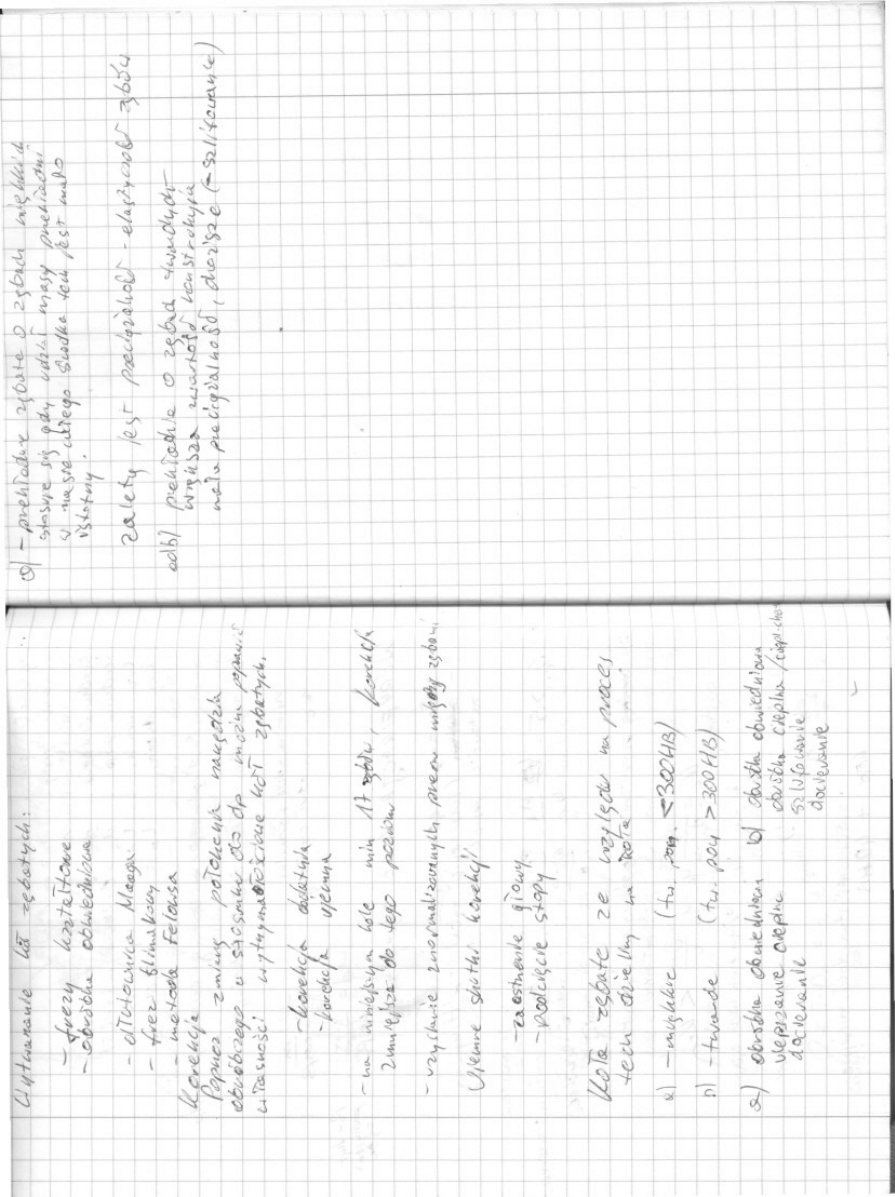 Wytwarzanie kół zębatych:
- frezy kształtowe
- obróbka obwiedniowa
- dłutownica Maaga
- frez ślimakowy
- metoda Felowsa
Korekcja
Poprzez zmianę położenia narzędzia
obróbczego w stosunku do dp można poprawić
własności wytrzymałościowe kół zębatych.
- korekcja dodatnia
- korekcja ujemna
- na mniejszym kole min 17 zębów, korekcja
zmniejsza do tego poziomu
- uzyskanie znormalizowanych przez między zębami
Ujemne skutki korekcji
- zaostrzenie głowy
- podcięcie stopy
Koła zębate ze względu na proces
tech dzielimy na koła
a) - miękkie (tw. pow. <300HB)
b) - twarde (tw. pow >300HB)
a) obróbka obwiedniowa
ulepszanie cieplne
docieranie
b) obróbka obwiedniowa
obróbka cieplna / ciepl-chem
szlifowanie
docieranie
a) - przekładnie zębate o zębach miękkich
stosuje się gdy udział masy przekładni
w masie całego środka tech jest mało
istotny.
zaletą jest przeciążalność - elastyczność zębów
adb) przekładnie o zębach twardych
większa zwartość konstrukcji
mała przeciążalność, droższe (- szlifowanie)